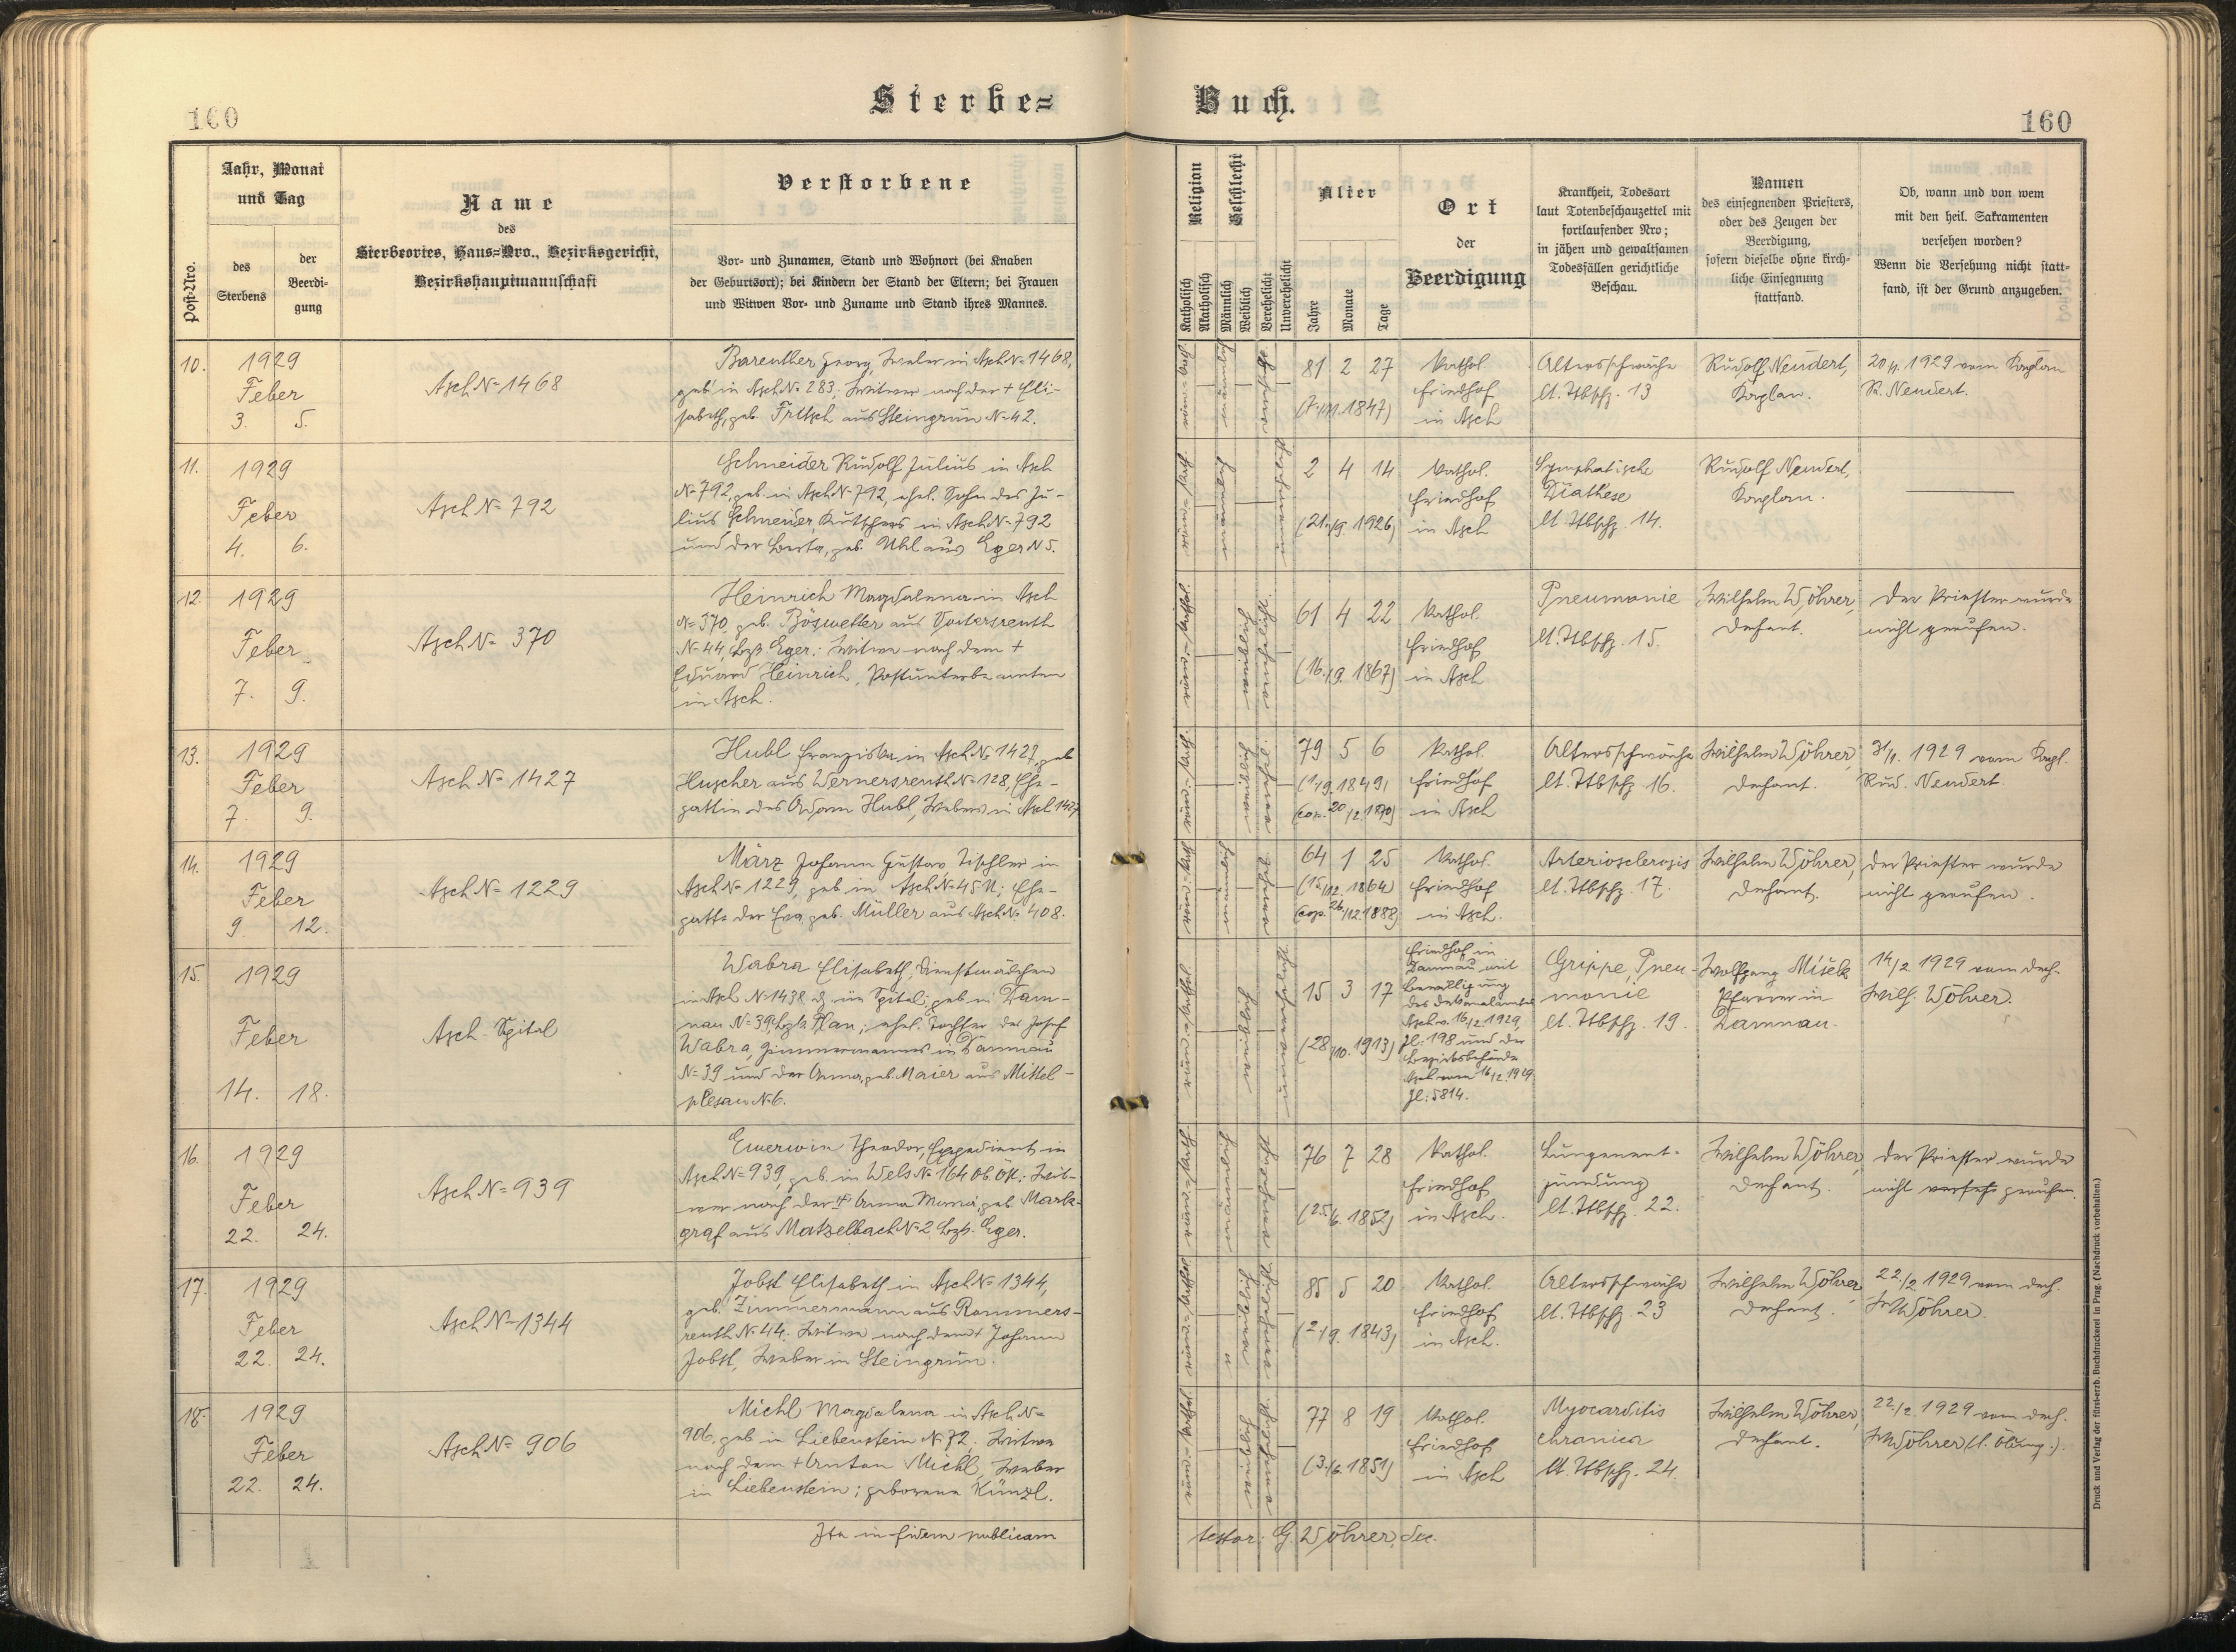 160
Sterbe=
Buch.
160
Post-Nro.
Jahr, Monat
und Tag
des
Sterbens
der
Beerdi-
gung
Name
des
Sterbeortes, Haus=Nro., Bezirksgericht,
Bezirkshauptmannschaft
Verstorbene
Vor- und Zunamen, Stand und Wohnort (bei Knaben
der Geburtsort); bei Kindern der Stand der Eltern; bei Frauen
und Witwen Vor- und Zuname und Stand ihres Mannes.
Religion
Katholisch
Akatholisch
Geschlecht
Männlich
Weiblich
Verehelicht
Unverehelicht
Alter
Jahre
Monate
Tage
Ort
der
Beerdigung
Krankheit, Todesart
laut Totenbeschauzettel mit
fortlaufender Nro;
in jähen und gewaltsamen
Todesfällen gerichtliche
Beschau.
Namen
des einsegnenden Priesters,
oder des Zeugen der
Beerdigung,
sofern dieselbe ohne kirch-
liche Einsegnung
stattfand.
Ob, wann und von wem
mit den heil. Sakramenten
versehen worden?
Wenn die Versehung nicht statt-
fand, ist der Grund anzugeben.
10.
1929
Feber
3. 5.
Asch No 1468
Bareuther Georg, Weber in Asch No 1468,
geb. in Asch No 283; Witwer nach der + Eli-
sabeth, geb. Fritsch aus Steingrün No 42.
81 2 27
(7./11. 1847)
Kathol.
Friedhof
in Asch
Altersschwäche
lt. Ttbschz. 13
Rudolf Neudert,
Kaplan.
1929 vom Kaplan
R. Neudert.
11.
1929
Feber
4. 6.
Asch No 792
Schneider Rudolf Julius in Asch
No 792, geb. in Asch No 792, ehel. Sohn des Ju-
lius Schneider, Kutschers in Asch No 792
und der Berta, geb. Uhl aus Eger N 5.
2 4 14
(21./9. 1926)
Kathol.
Friedhof
in Asch
Lymphatische
Diathese
lt. Ttbschz. 14.
Rudolf Neudert,
Kaplan.
12.
1929
Feber
7. 9.
Asch No 370
Heinrich Magdalena in Asch
No 370, geb. Böswetter aus Voitersreuth
No 44, Bzk. Eger; Witwe nach dem +
Eduard Heinrich, Postunterbeamten
in Asch.
61 4 22
(16./9. 1867)
Kathol.
Friedhof
in Asch
Pneumonie
lt. Ttbschz. 15.
Wilhelm Wöhrer,
Dechant.
Der Priester wurde
nicht gerufen.
13.
1929
Feber
7. 9.
Asch No 1427
Hubl Franziska in Asch No 1427, geb.
Huscher aus Wernersreuth No 128, Ehe-
gattin des Adam Hubl, Webers in Asch 1427
79 5 6
(1/9. 1849,
cop. 20/2. 1870)
Kathol.
Friedhof
in Asch
Altersschwäche
lt. Ttbschz. 16.
Wilhelm Wöhrer,
Dechant.
31/1. 1929 vom Kapl.
Rud. Neudert.
14.
1929
Feber
9. 12.
Asch No 1229
März Johann Gustav Tischler in
Asch No 1229, geb. in Asch No 45; Ehe-
gatte der Eva, geb. Müller aus Asch No 408.
64 1 25
(15/12. 1864)
(cop. 26/12. 1888)
Kathol.
Friedhof
in Asch.
Arteriosclerosis
lt. Ttbschz. 17.
Wilhelm Wöhrer,
Dechant.
Der Priester wurde
nicht gerufen.
15.
1929
Feber
14. 18.
Asch-Spital
Wabra Elisabeth, Dienstmädchen
in Asch No 1438 d. im Spital; geb. in Dam-
nau No 39, Bzk. Plan; ehel. Tochter des Josef
Wabra, Zimmermanns in Damnau
No 39 und der Anna, geb. Maier aus Mittel-
No 6.
15 3 17
(28./10. 1913)
Friedhof in
Damnau mit
Bewilligung
des Dekanalamtes
Asch v. 16/2. 1929,
Zl. 198 und der
Bezirksbehörde
Asch vom 16/2. 1929
Zl: 5814.
Grippe, Pneu-
monie
lt. Ttbschz. 19.
Wolfgang Mišek
Pfarrer in
Damnau.
14/2. 1929 vom Dech.
Wilh. Wöhrer.
16.
1929
Feber
22. 24.
Asch No 939
Ewerwin Theodor, Expedient in
Asch No 939, geb. in Wels No 164 Ob. Öst.: Wit-
wer nach der + Anna Maria, geb. Mark-
graf aus Matzelbach No 2. Bzk. Eger.
76 7 28
(25./6. 1852)
Kathol.
Friedhof
in Asch.
Lungenent-
zündung
lt. Ttbschz. 22.
Wilhelm Wöhrer,
Dechant.
Der Priester wurde
nicht gerufen.
17.
1929
Feber
22. 24.
Asch No 1344
Jobst Elisabeth in Asch No 1344,
geb. Zimmermann aus Rommers-
reuth No 44. Witwe nach dem + Johann
Jobst, Weber in Steingrün.
85 5 20
(2/9. 1843)
Kathol.
Friedhof
in Asch.
Altersschwäche
lt. Ttbschz. 23
Wilhelm Wöhrer,
Dechant.
22./2. 1929 vom Dech.
W. Wöhrer.
18.
1929
Feber
22. 24.
Asch No 906
Michl Magdalena in Asch No
906, geb. in Liebenstein No 72. Witwe
nach dem + Anton Michl, Weber
in Liebenstein; geborene Künzl.
77 8 19
(3./6. 1851)
Kathol.
Friedhof
in Asch
Myocarditis
chronica
lt. Ttbschz. 24.
Wilhelm Wöhrer,
Dechant.
22/2. 1929 vom Dech.
W. Wöhrer (l. Ölung).
Ita in fidem publicam
testor: G. Wöhrer, Dec.
Druck und Verlag der fürst-erzb. Buchdruckerei in Prag. (Nachdruck vorbehalten.)